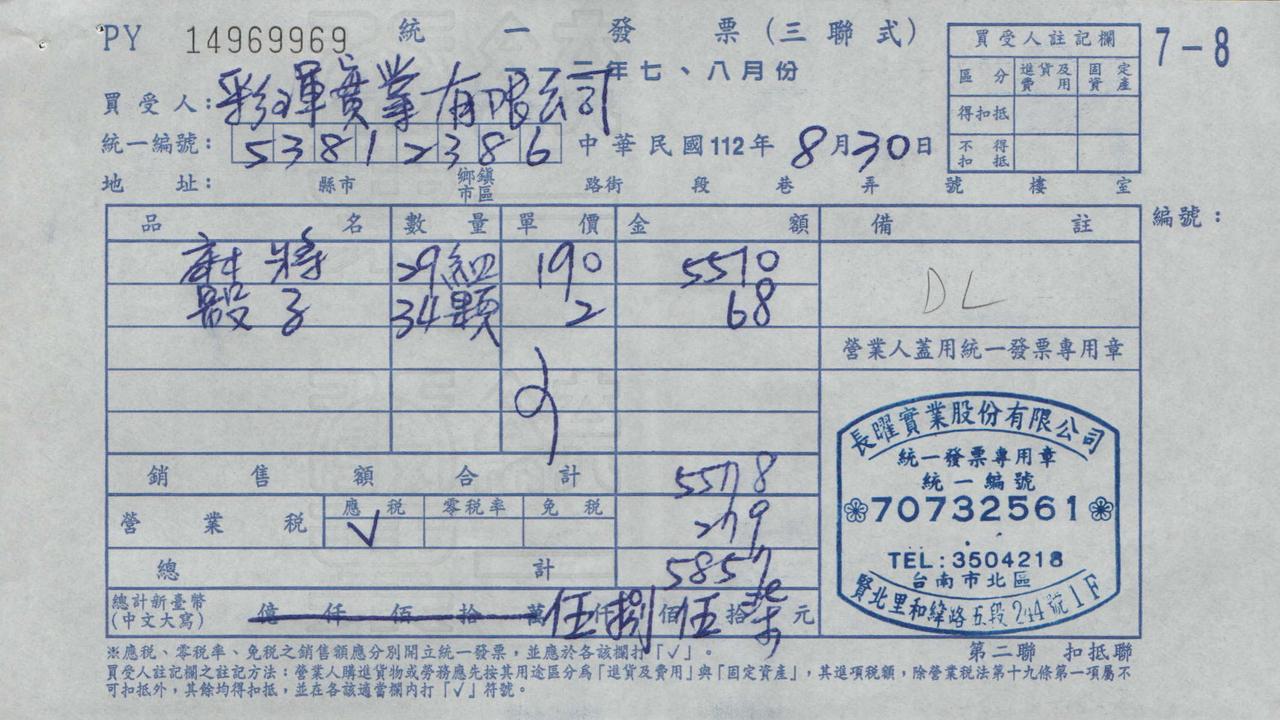 PY 14969969 統一發票(三聯式)
一一二年七、八月份
7-8
買受人:彩琿實業有限公司
統一編號:53812386 中華民國112年8月30日
地址: 縣市 鄉鎮市區 路街 段 巷 弄 號 樓 室
買受人註記欄
區分 進貨及費用 固定資產
得扣抵
不得扣抵
品名 數量 單價 金額 備註
編號:
麻將 29組 190 5510
骰子 34顆 2 68
DL
營業人蓋用統一發票專用章
銷售額合計 5578
營業稅 應稅 零稅率 免稅 279
✓
總計 5857
總計新臺幣(中文大寫) 億仟佰拾萬伍仟捌佰伍拾柒元
長曜實業股份有限公司
統一發票專用章
統一編號
70732561
TEL:3504218
台南市北區
賢北里和緯路五段244號1F
第二聯 扣抵聯
※應稅、零稅率、免稅之銷售額應分別開立統一發票,並應於各該欄打「✓」。
買受人註記欄之註記方法:營業人購進貨物或勞務應先按其用途區分為「進貨及費用」與「固定資產」,其進項稅額,除營業稅法第十九條第一項屬不
可扣抵外,其餘均得扣抵,並在各該適當欄內打「✓」符號。